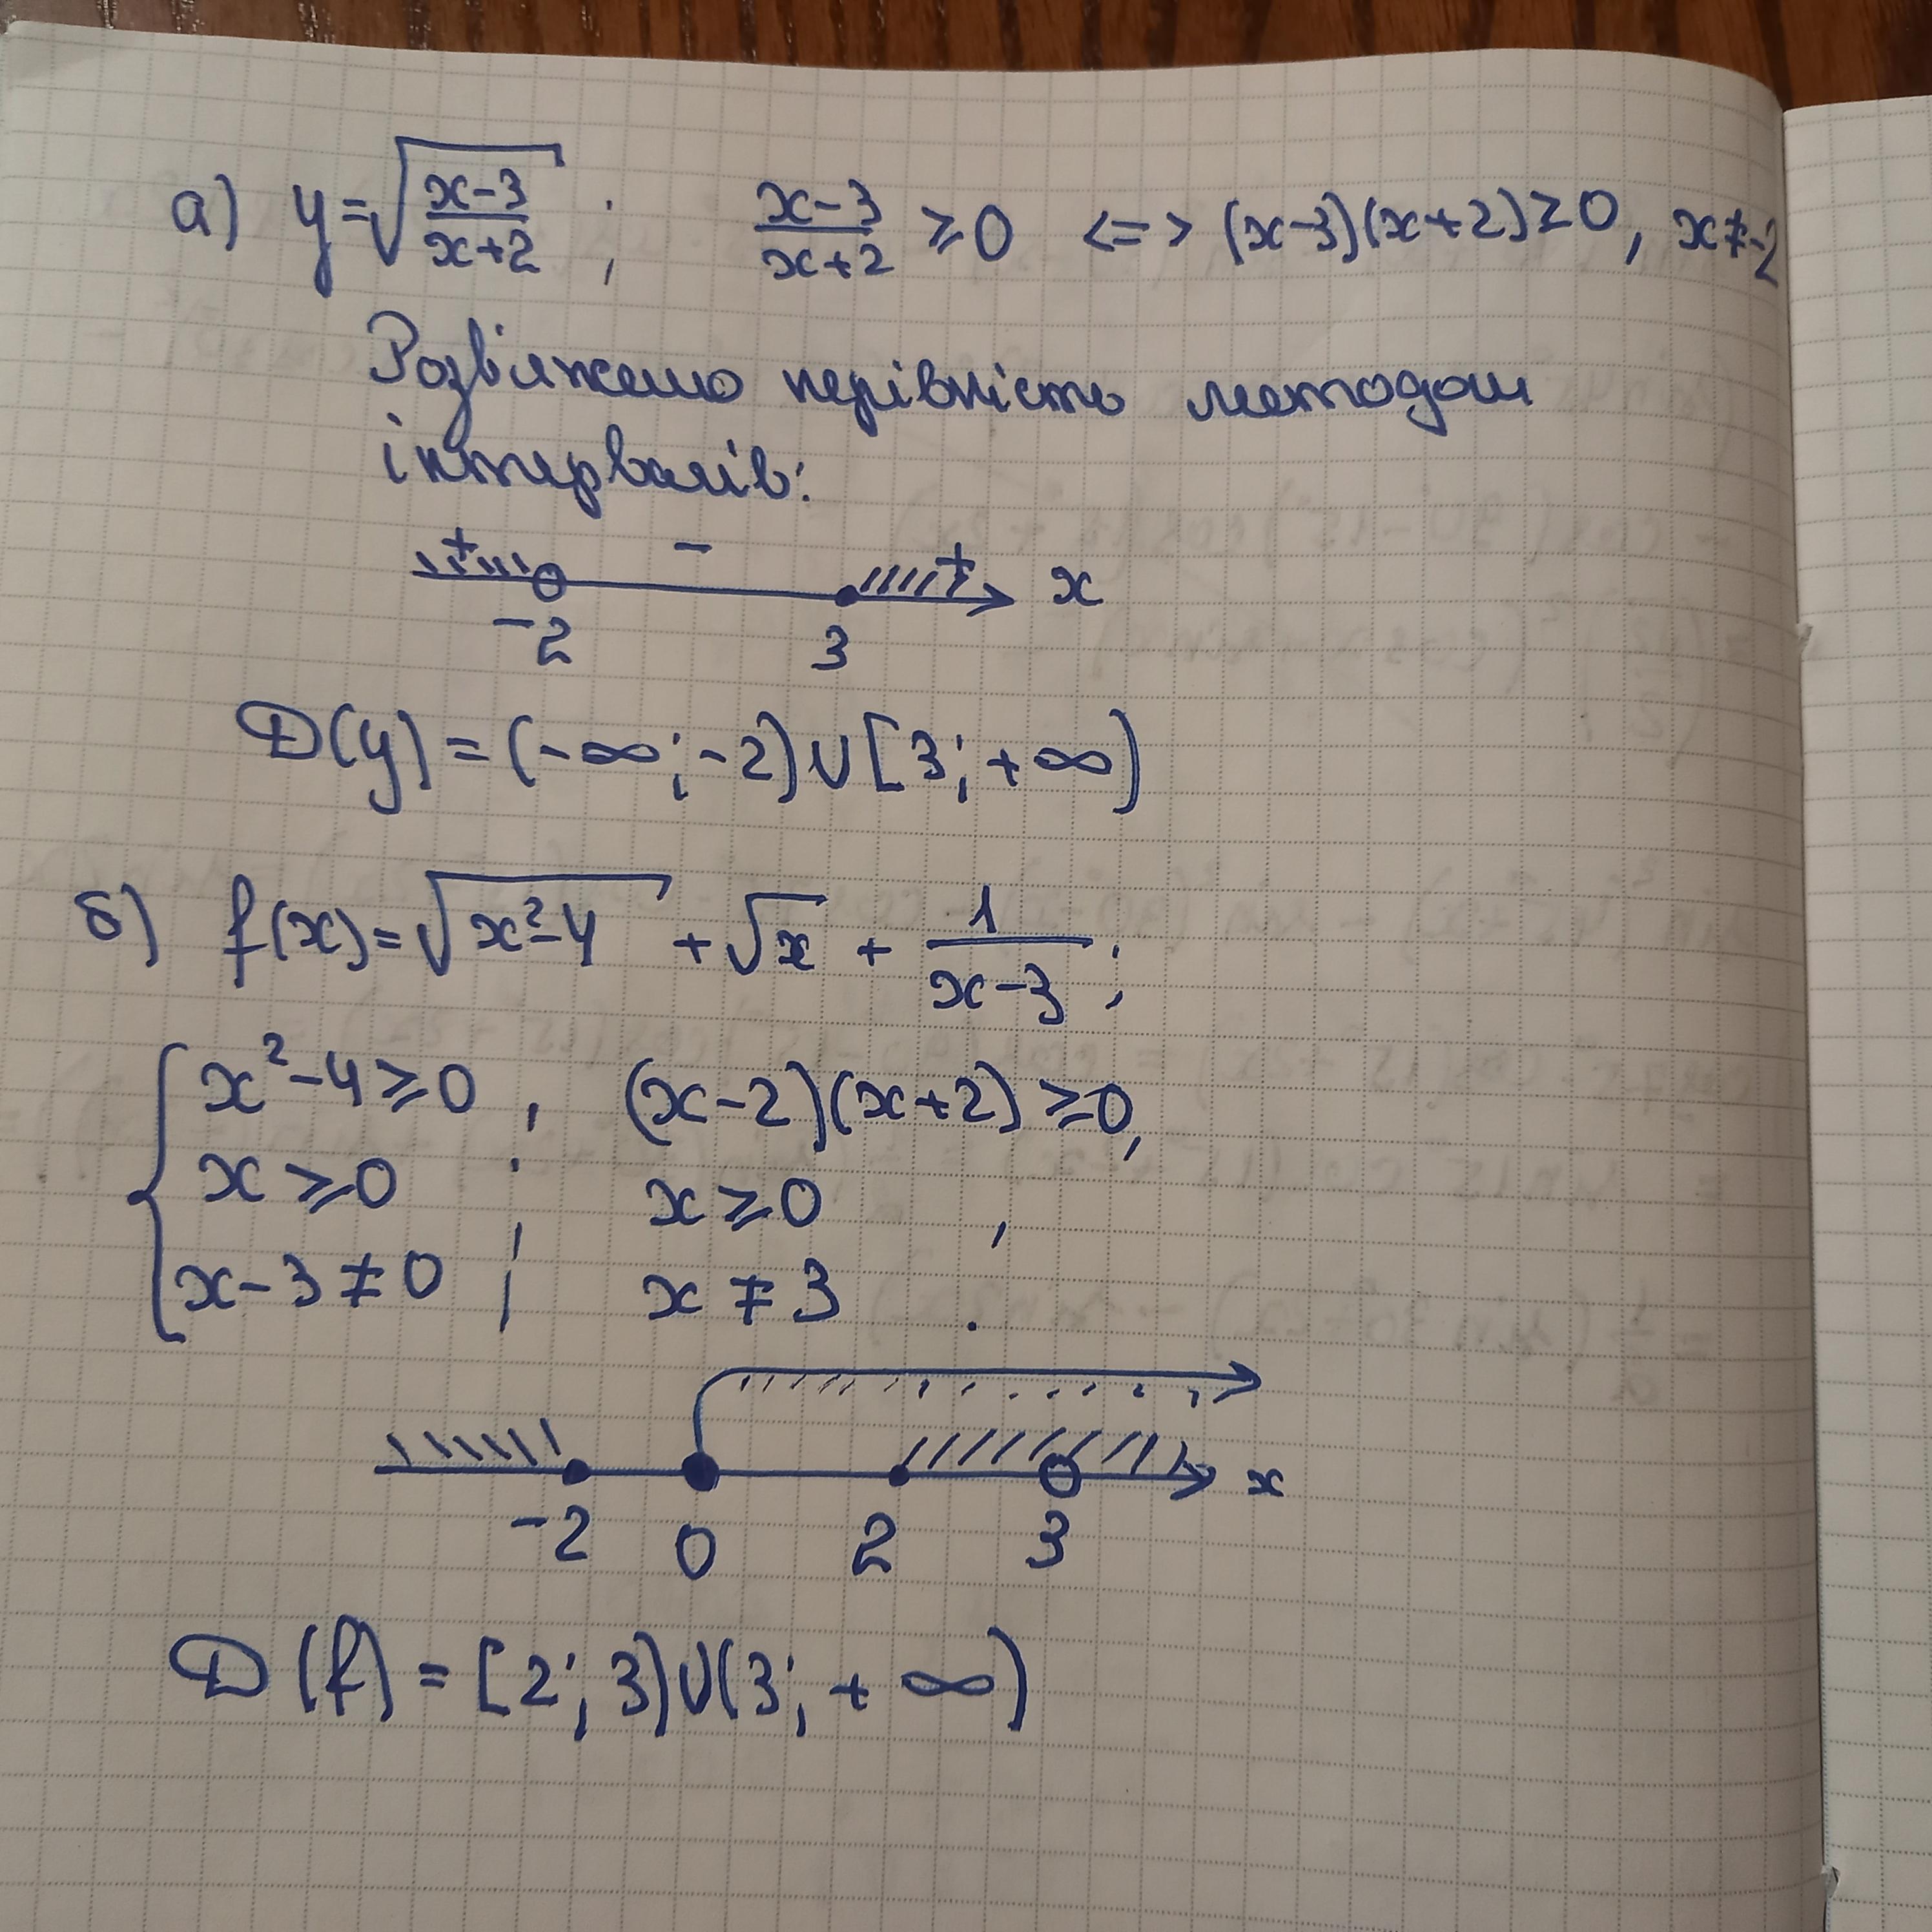 а) y=√((x-3)/(x+2)) ; (x-3)/(x+2) ⩾0 <=> (x-3)(x+2)≥0, x≠-2
Розвяжемо нерівність методом
інтервалів:
+ - + x
-2 3
D(y)=(-∞;-2)∪[3;+∞)
б) f(x)=√(x²-4) + √x + 1/(x-3);
{ x²-4⩾0 , (x-2)(x+2)⩾0,
x⩾0 ; x⩾0 ,
x-3≠0 ; x≠3 .
x
-2 0 2 3
D(f)=[2;3)∪(3;+∞)